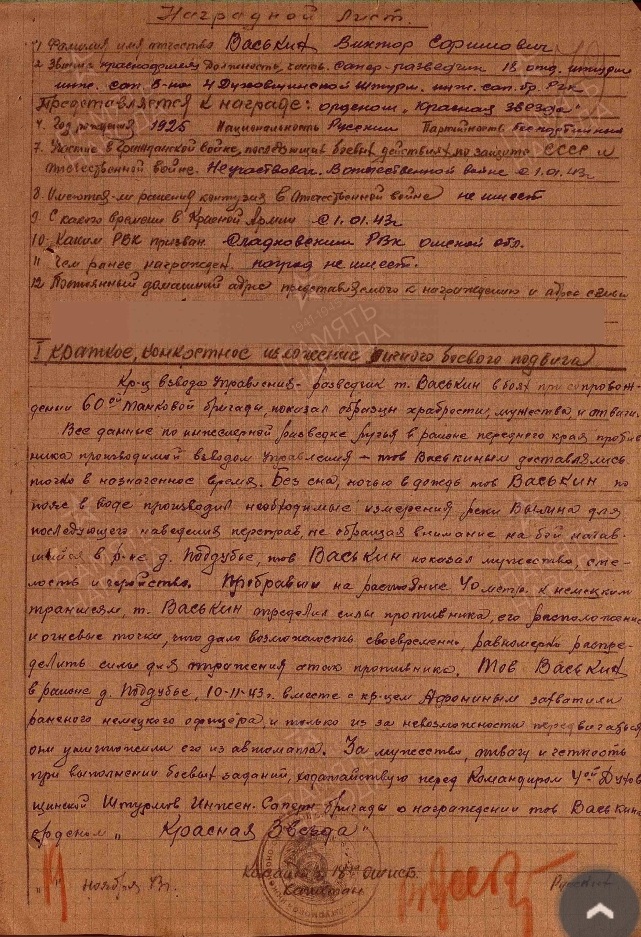 Наградной лист.
1 Фамилия имя отчество Васькин Виктор Ефимович
2. Звание красноармеец Должность, часть. Сапер-разведчик 18 отд. штурм
инж. сап. б-на 4 Духовщинской Штурм. инж. сап. бр. РГК
Представляется к награде: орденом „Красная звезда"
4. Год рождения 1925 Национальность Русский Партийность беспартийный
7. Участие в гражданской войне, последующих боевых действиях по защите СССР и
отечественной войне. Не участвовал. В отечественной войне с 1.01.43г
8. Имеются ли ранения контузия в отечественной войне не имеет
9. С какого времени в Красной Армии с 1.01.43г
10. Каким РВК призван Сладковским РВК Омской обл.
11. Чем ранее награжден. наград не имеет.
12 Постоянный домашний адрес представляемого к награждению и адрес семьи
I Краткое, конкретное изложение личного боевого подвига
Кр-ц взвода Управления - разведчик т. Васькин в боях при сопровож-
дении 60ой танковой бригады, показал образцы храбрости, мужества и отваги.
Все данные по инженерной разведке в районе переднего края против-
ника производимой взводом управления – тов Васькиным доставлялись
точно в назначенное время. Без сна, ночью в дождь тов Васькин по
пояс в воде производил необходимые измерения реки для
последующего наведения переправ, не обращая внимание на бой
в р-не д. Поддубье, тов Васькин показал мужество, сме-
лость и геройство. на расстояние 40 метр. к немецким
траншеям, т. Васькин определил силы противника, его расположение
и огневые точки, что дало возможность своевременно равномерно распре-
делить силы для отражения атак противника. Тов Васькин
в районе д. Поддубье, 10-11-43г. вместе с кр-цем Афониным захватили
раненого немецкого офицера и только из за невозможности передвигаться
они уничтожили его из автомата. За мужество, отвагу и
при выполнении боевых заданий, ходатайствую перед Командиром 4ой Духов-
щинской Штурмов Инжен. Саперн бригады о награждении тов Васькина
орденом „Красная Звезда"
18 ошисб.
Капитан
19 ноября 43г.
ПАМЯТЬ НАРОДА